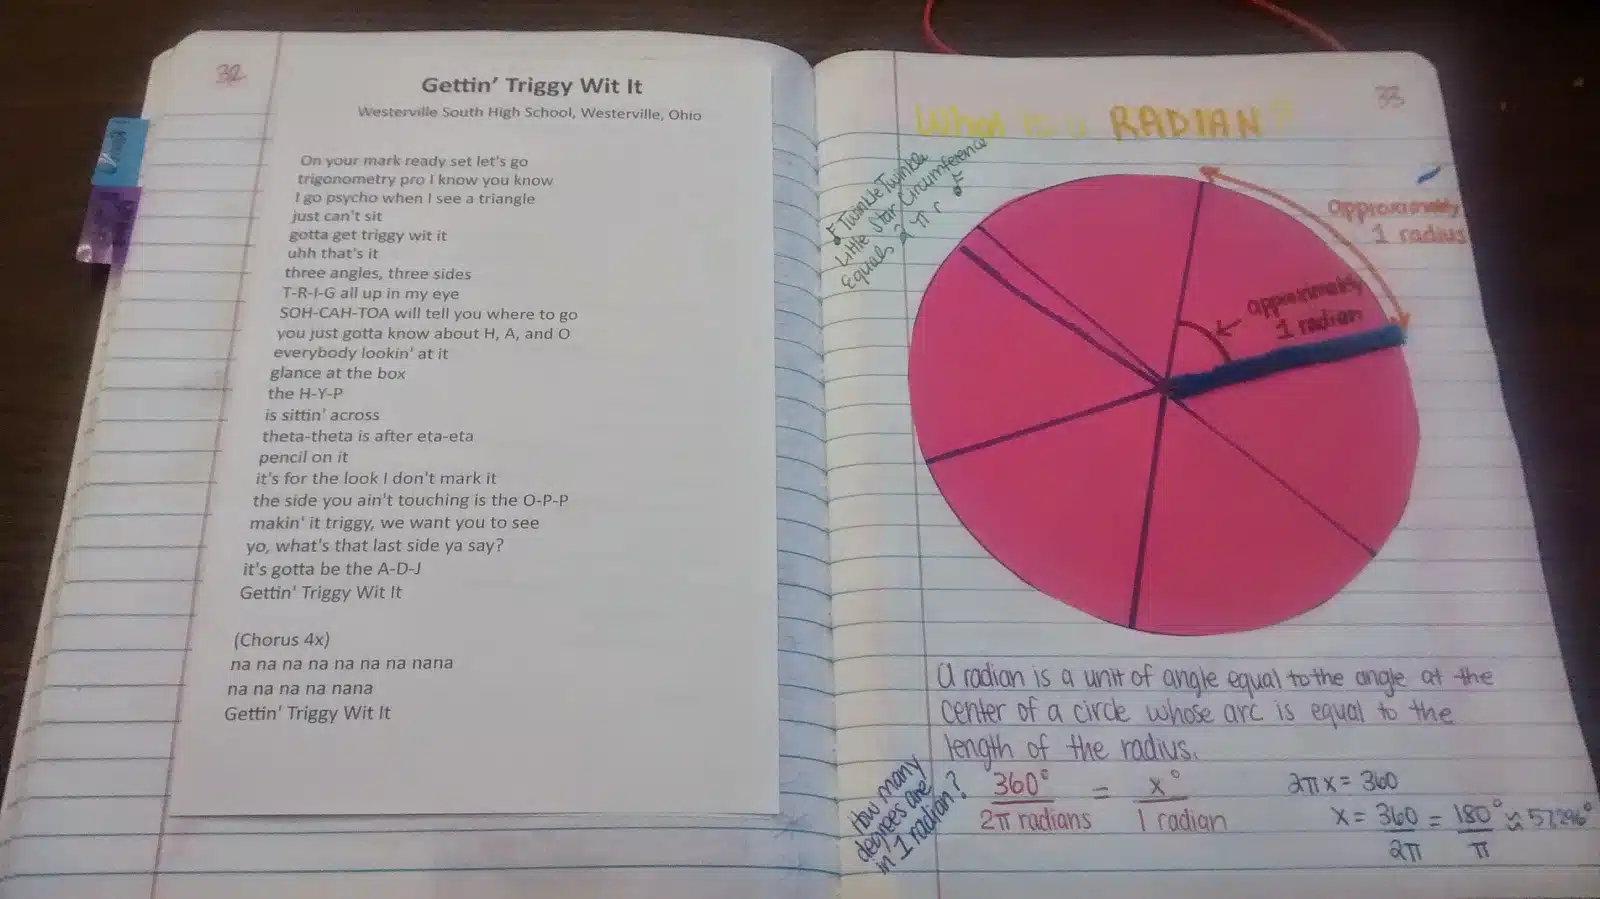 32
Gettin' Triggy Wit It
Westerville South High School, Westerville, Ohio
On your mark ready set let's go
trigonometry pro I know you know
I go psycho when I see a triangle
just can't sit
gotta get triggy wit it
uhh that's it
three angles, three sides
T-R-I-G all up in my eye
SOH-CAH-TOA will tell you where to go
you just gotta know about H, A, and O
everybody lookin' at it
glance at the box
the H-Y-P
is sittin' across
theta-theta is after eta-eta
pencil on it
it's for the look I don't mark it
the side you ain't touching is the O-P-P
makin' it triggy, we want you to see
yo, what's that last side ya say?
it's gotta be the A-D-J
Gettin' Triggy Wit It
(Chorus 4x)
na na na na na na na nana
na na na na nana
Gettin' Triggy Wit It
33
What is a RADIAN?
Twinkle Twinkle
Little Star Circumference
Equals 2 π r
approximately
1 radius
approximately
1 radian
A radian is a unit of angle equal to the angle at the
center of a circle whose arc is equal to the
length of the radius.
How many
degrees are
in 1 radian?
360° / 2π radians = x° / 1 radian
2πx = 360
x = 360 / 2π = 180° / π ≈ 57.296°